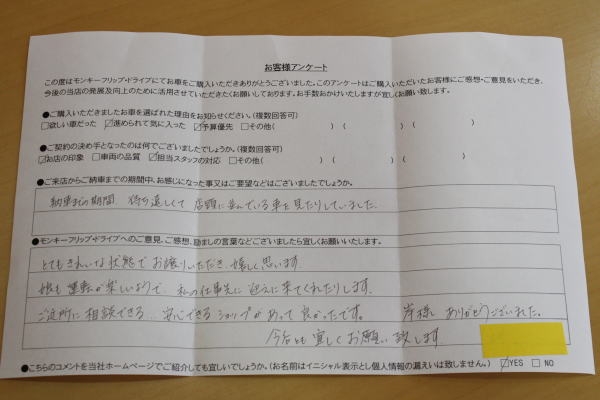 お客様アンケート
この度はモンキーフリップ・ドライブにてお車をご購入いただきありがとうございました。このアンケートはご購入いただいたお客様にご感想・ご意見をいただき、
今後の当店の発展及向上のために活用させていただきたくお願いしております。お手数おかけいたしますが宜しくお願い致します。
●ご購入いただきましたお車を選ばれた理由をお知らせください。(複数回答可)
□欲しい車だった ☑進められて気に入った ☑予算優先 □その他( ) ( ) ( )
●ご契約の決め手となったのは何でございましたでしょうか。(複数回答可)
☑お店の印象 □車両の品質 ☑担当スタッフの対応 □その他( ) ( ) ( )
●ご来店からご納車までの期間中、お感じになった事又はご要望などはございましたでしょうか。
納車までの期間、待ち遠しくて店頭に並んでいる車を見たりしていました。
●モンキーフリップ・ドライブへのご意見、ご感想、励ましの言葉などございましたら宜しくお願いいたします。
とてもきれいな状態でお譲りいただき、嬉しく思います。
娘も運転が楽しいようで、私の仕事先に迎えに来てくれたりします。
ご近所に相談できる…安心できるショップがあって良かったです。 岸様 ありがとうございました。
今后とも宜しくお願い致します
●こちらのコメントを当社ホームページでご紹介しても宜しいでしょうか。(お名前はイニシャル表示とし個人情報の漏えいは致しません。) ☑YES □ NO